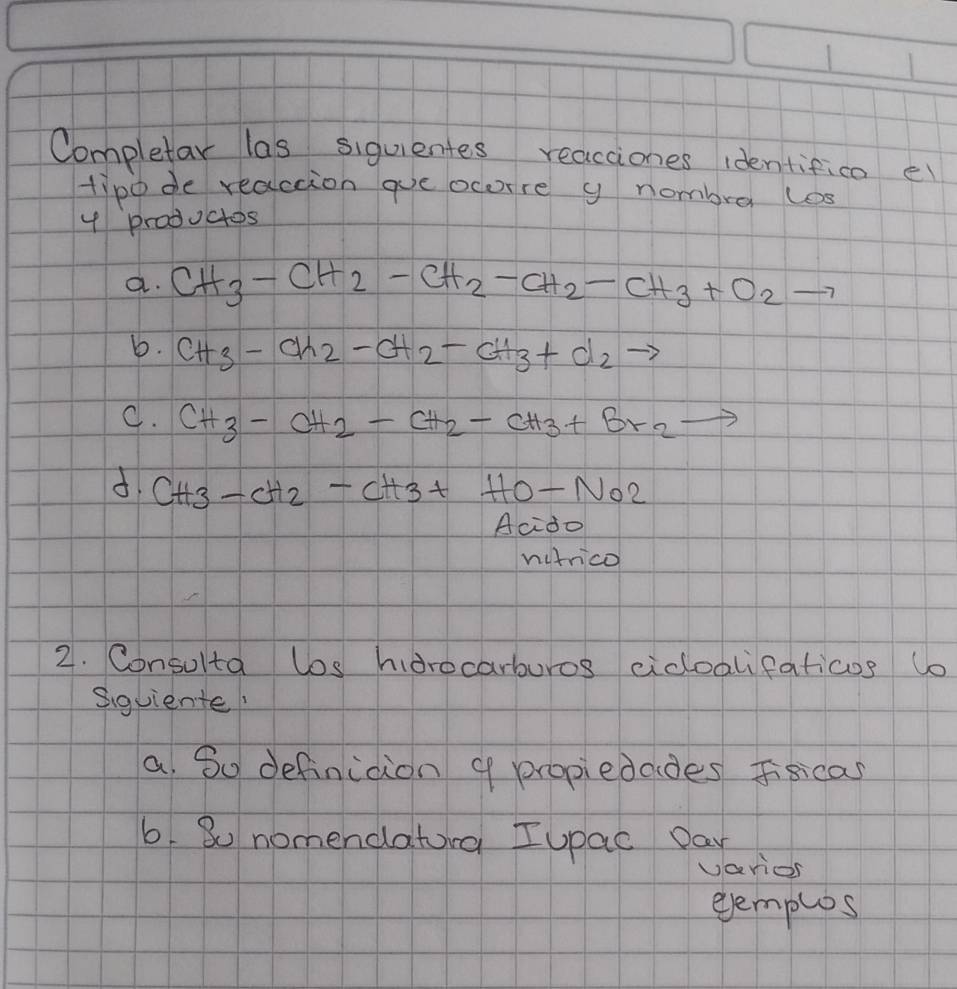 Completar las siguientes reacciones identifico el
tipo de reaccion que ocorre y nombra los
y productos
a. CH3-CH2-CH2-CH2-CH3+O2→
b. CH3-Ch2-CH2-CH3+Cl2→
C. CH3-CH2-CH2-CH3+Br2→
d. CH3-CH2-CH3+ HO-NO2
Acido
nitrico
2. Consulta los hidrocarburos cicloalifaticos lo
Siguiente:
a. Su definicion y propiedades Fisicas
b. Su nomenclatura Iupac Dar
varios
ejemplos